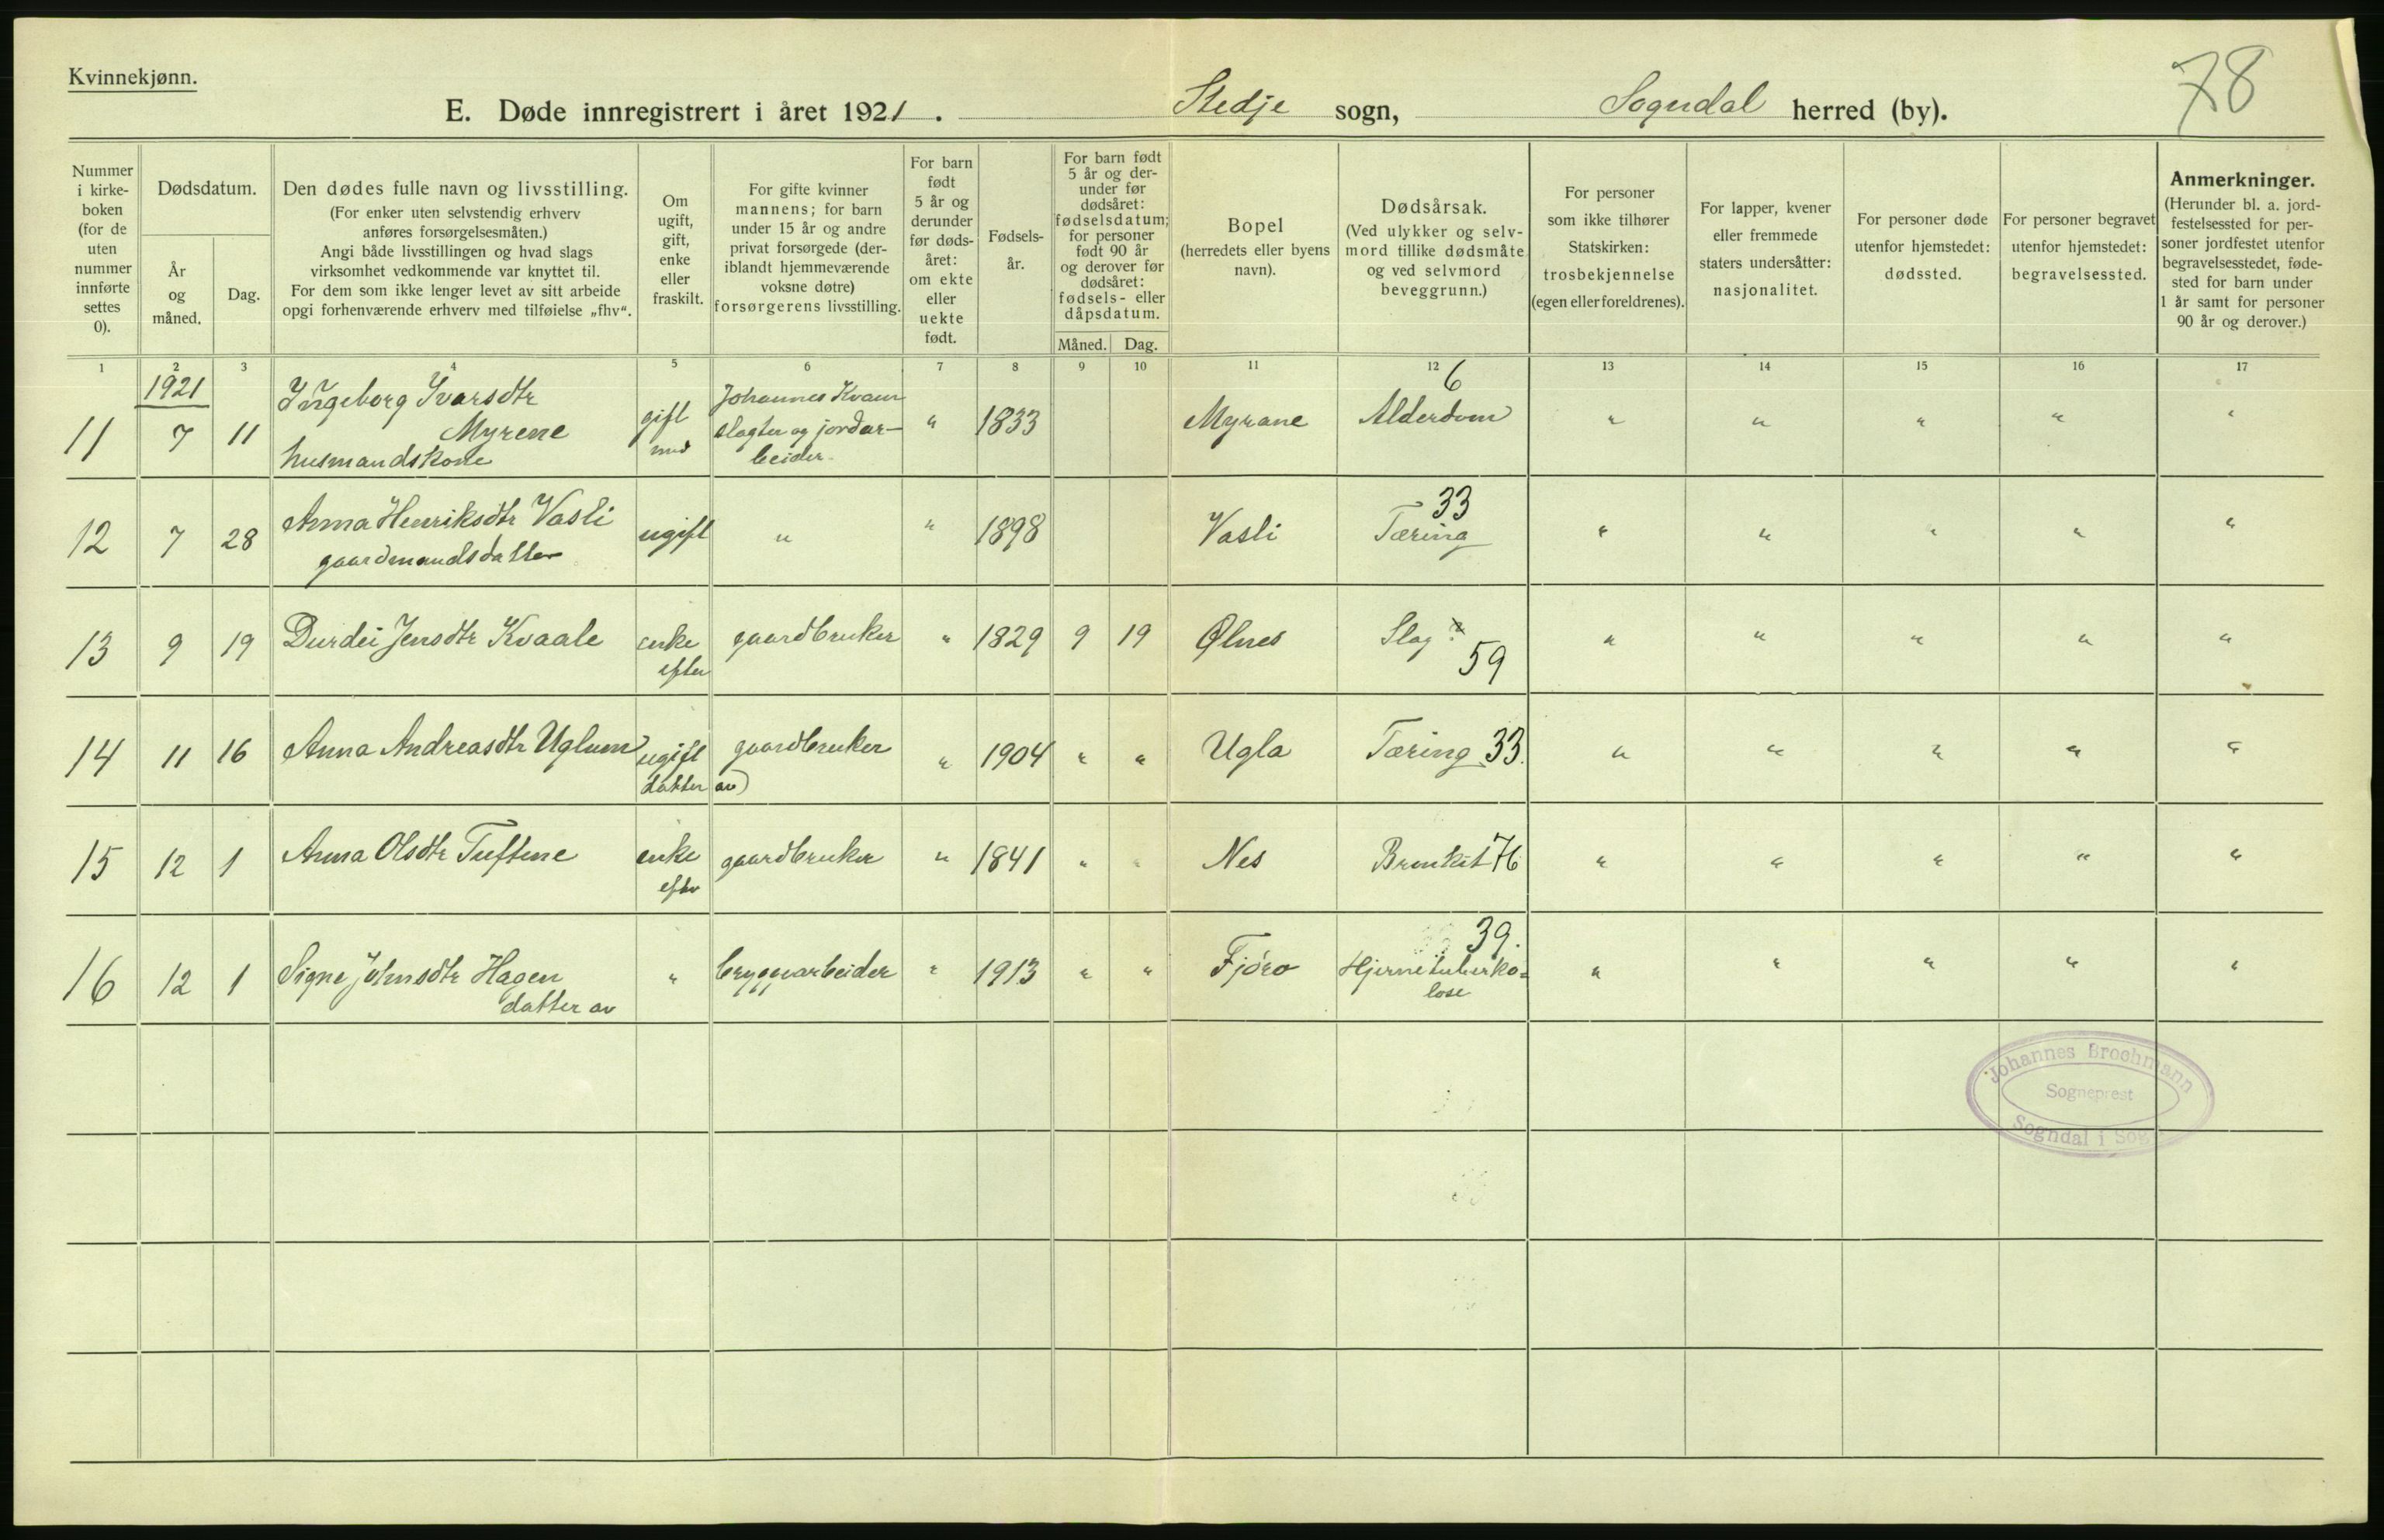 Kvinnekjønn.
78
E. Døde innregistrert i året 1921. Stedje sogn, Sogndal herred (by).
Nummer
i kirke-
boken
(for de
uten
nummer
innførte
settes
0).
Dødsdatum.
År
og
måned.
Dag.
Den dødes fulle navn og livsstilling.
(For enker uten selvstendig erhverv
anføres forsørgelsesmåten.)
Angi både livsstillingen og hvad slags
virksomhet vedkommende var knyttet til.
For dem som ikke lenger levet av sitt arbeide
opgi forhenværende erhverv med tilføielse „fhv“.
Om
ugift,
gift,
enke
eller
fraskilt.
For gifte kvinner
mannens; for barn
under 15 år og andre
privat forsørgede (der-
iblandt hjemmeværende
voksne døtre)
forsørgerens livsstilling.
For barn
født
5 år og
derunder
før døds-
året:
om ekte
eller
uekte
født.
Fødsels-
år.
For barn født
5 år og der-
under før
dødsåret:
fødselsdatum;
for personer
født 90 år
og derover før
dødsåret:
fødsels- eller
dåpsdatum.
Måned. Dag.
Bopel
(herredets eller byens
navn).
Dødsårsak.
(Ved ulykker og selv-
mord tillike dødsmåte
og ved selvmord
beveggrunn.)
For personer
som ikke tilhører
Statskirken:
trosbekjennelse
(egen eller foreldrenes).
For lapper, kvener
eller fremmede
staters undersåtter:
nasjonalitet.
For personer døde
utenfor hjemstedet:
dødssted.
For personer begravet
utenfor hjemstedet:
begravelsessted.
Anmerkninger.
(Herunder bl. a. jord-
festelsessted for per-
soner jordfestet utenfor
begravelsesstedet, føde-
sted for barn under
1 år samt for personer
90 år og derover.)
1 2 3 4 5 6 7 8 9 10 11 12 13 14 15 16 17
1921
11 7 11 Ingeborg Ivarsdtr
Myrene
husmandskone
gift
med
Johannes Kvam
slagter og jordar-
beider
" 1833 Myrane 6
Alderdom " " " " "
12 7 28 Anna Henriksdtr Vasli
gaardmandsdatter
ugift " " 1898 Vasli 33
Tæring " " " " "
13 9 19 Durdei Jensdtr Kvaale enke
efter
gaardbruker " 1829 9 19 Ølnes Slag ?
59 " " " " "
14 11 16 Anna Andreasdtr Uglum ugift
datter av)
gaardbruker " 1904 " " Ugla Tæring 33. " " " " "
15 12 1 Anna Olsdtr Tuftene enke
efter
gaardbruker " 1841 " " Nes Bronkit 76 " " " " "
16 12 1 Signe Johnsdtr Hagen
datter av
" bryggearbeider " 1913 " " Fjóro 39.
Hjernetuberko-
lose " " " " "
Johannes Brochmann
Sogneprest
Sogndal i Sogn